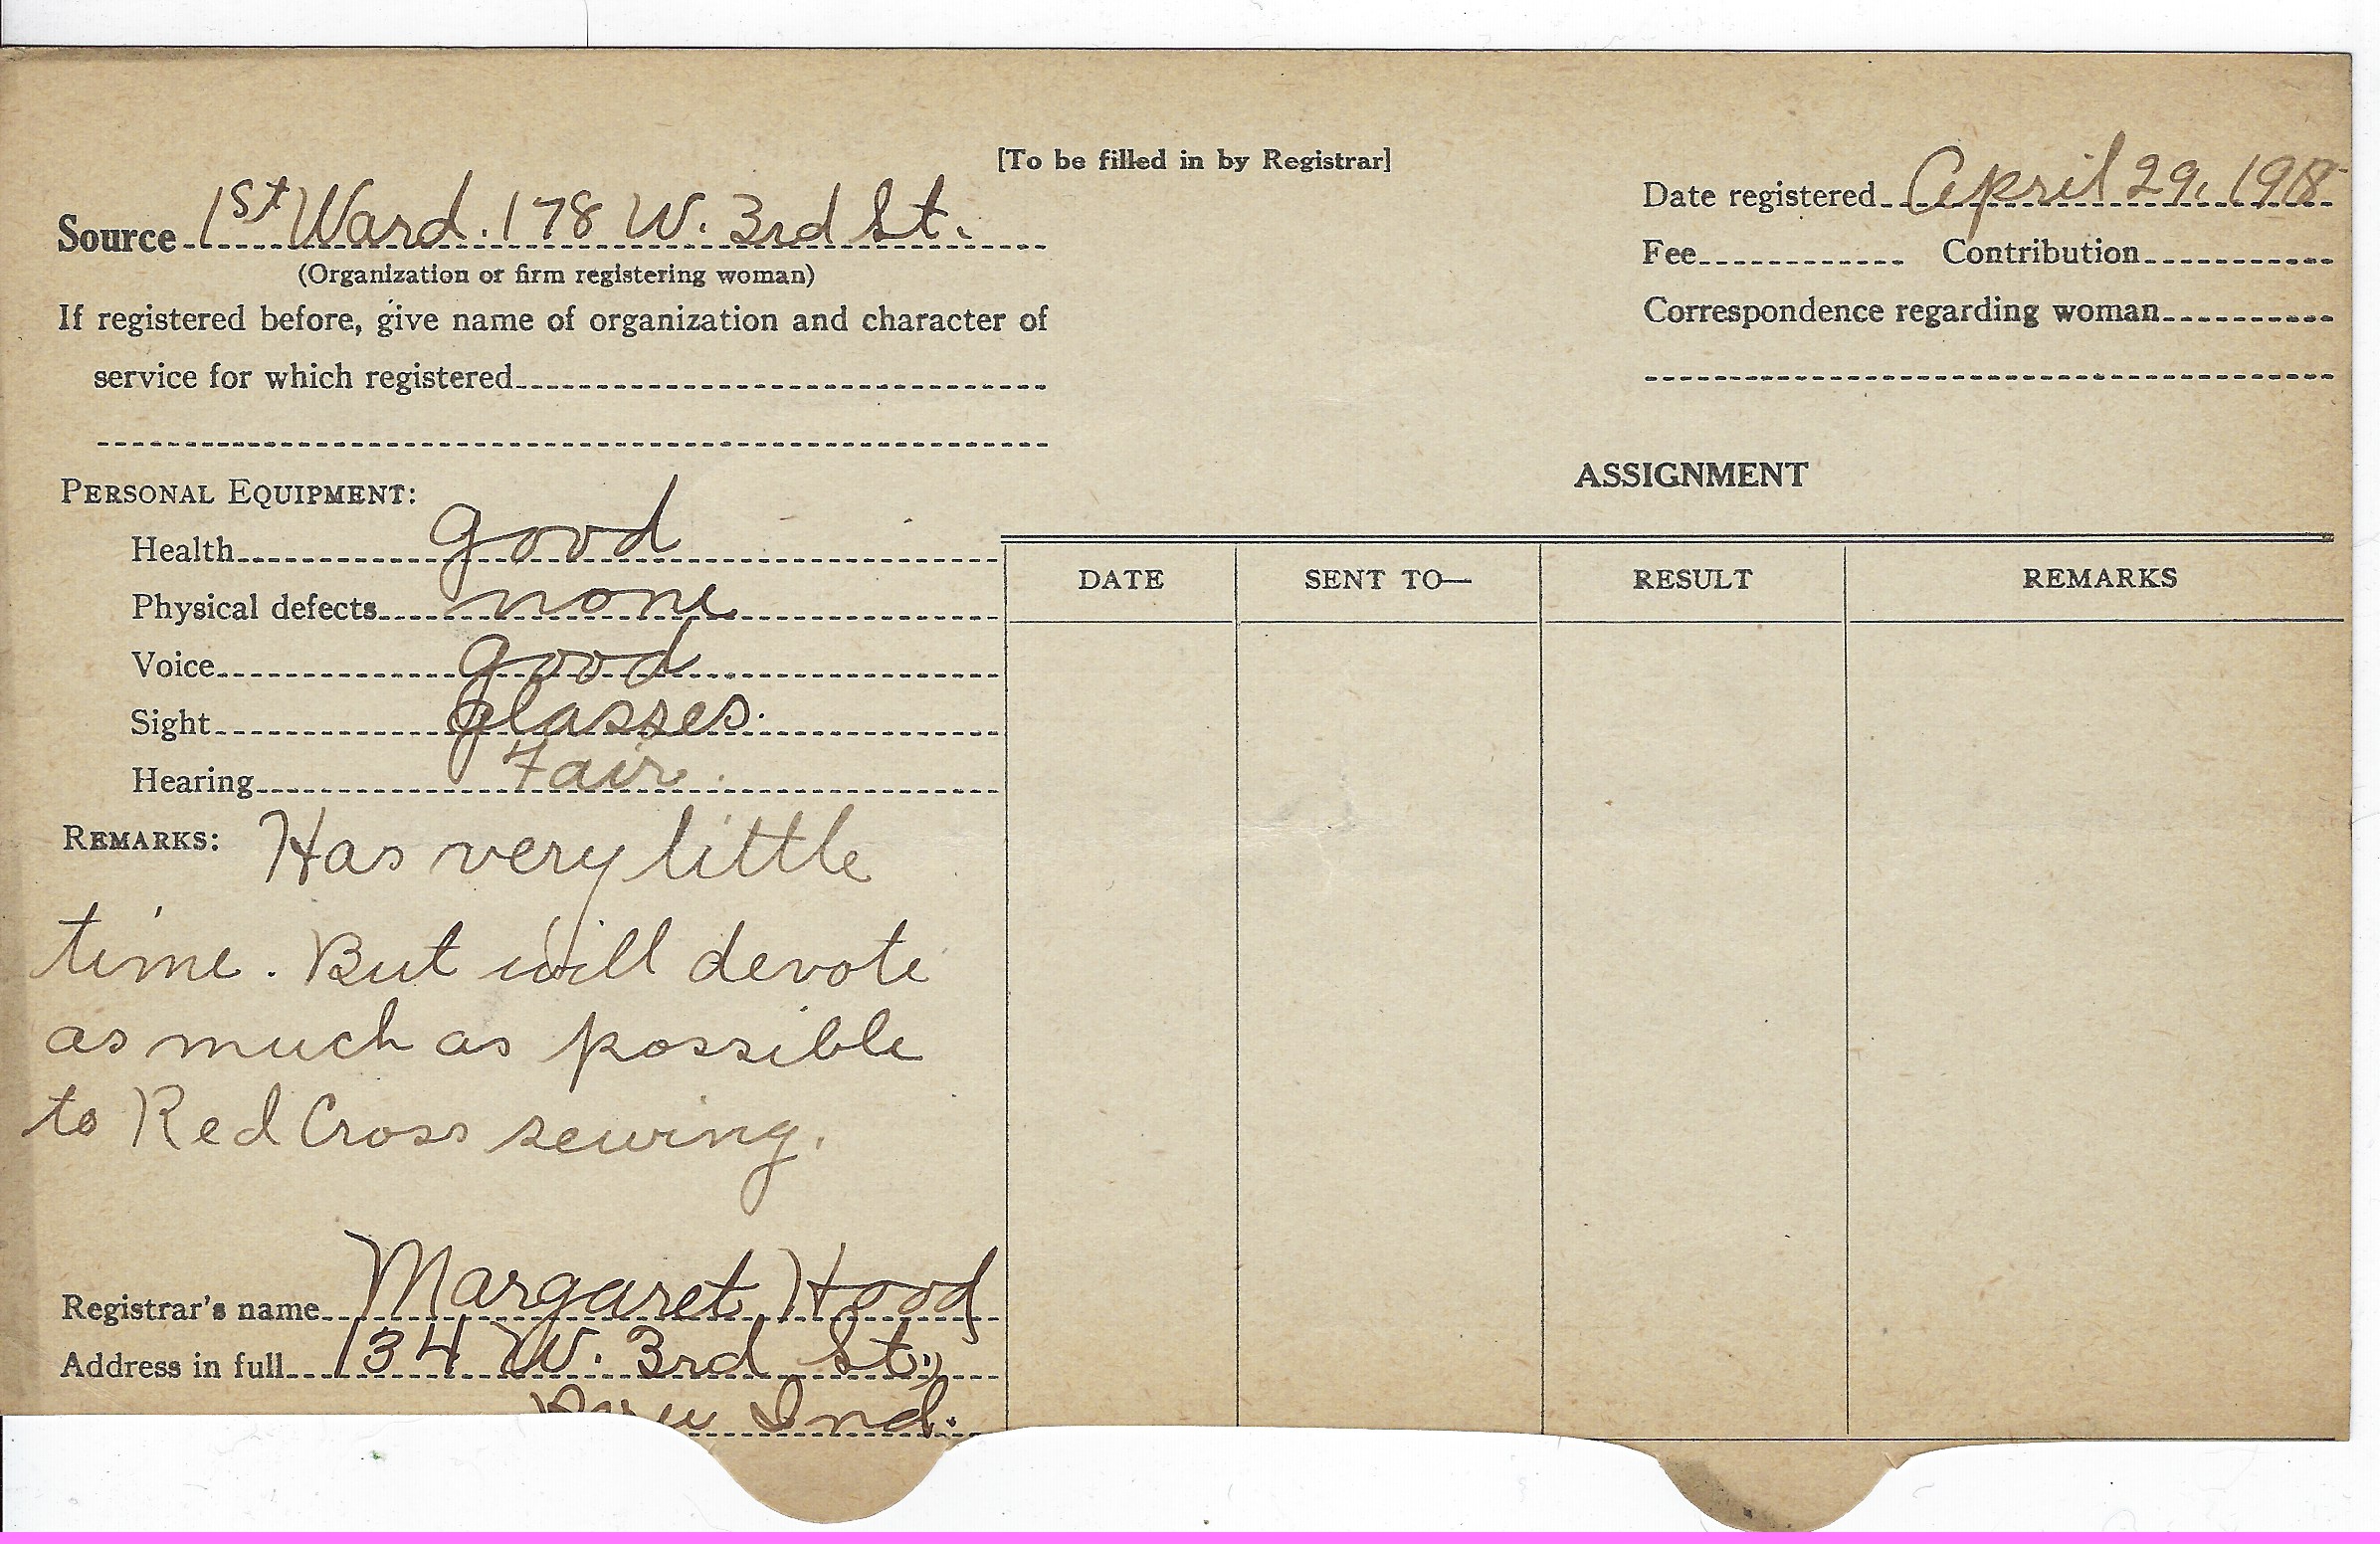 [To be filled in by Registrar]
Source 1st Ward. 178 W. 3rd St.
(Organization or firm registering woman)
If registered before, give name of organization and character of
service for which registered
Date registered April 29, 1918
Fee Contribution
Correspondence regarding woman
PERSONAL EQUIPMENT:
Health good
Physical defects none
Voice good
Sight glasses.
Hearing Fair.
REMARKS: Has very little
time. But will devote
as much as possible
to Red Cross sewing.
Registrar's name Margaret Hood
Address in full 134 W. 3rd St.,
Peru Ind.
ASSIGNMENT
DATE SENT TO— RESULT REMARKS